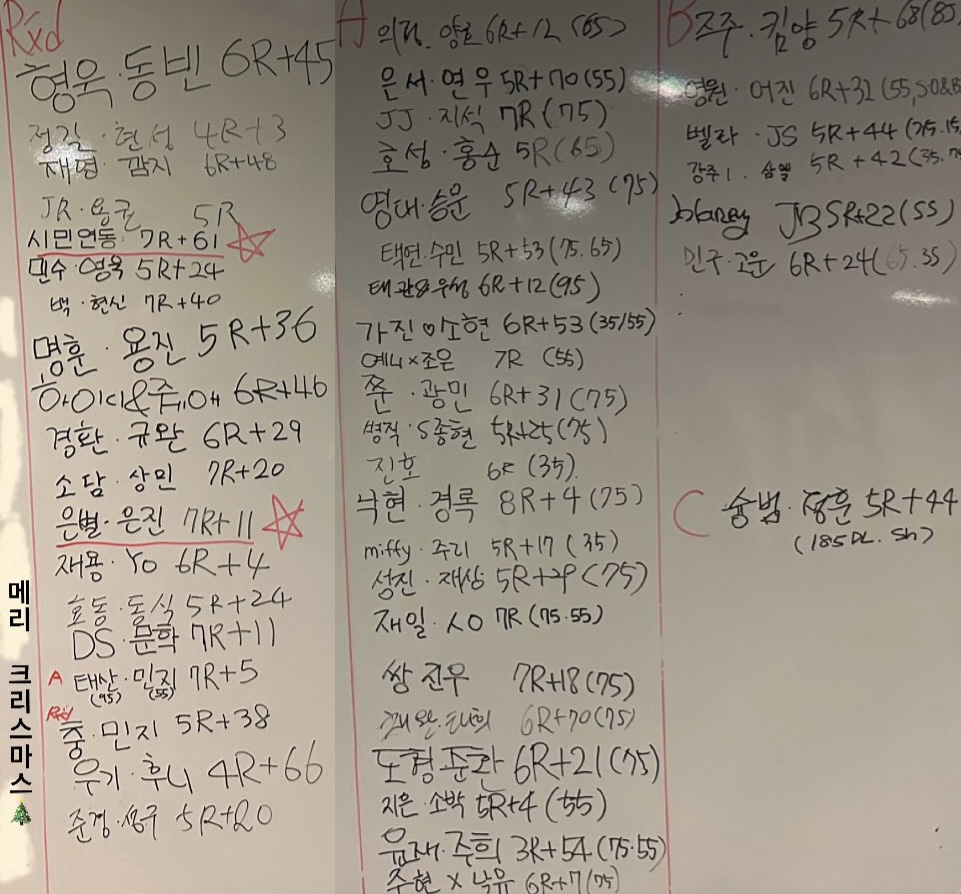 Rxd
형욱·동빈 6R+45
정길·현성 4R+3
재형·감지 6R+48
JR·용권 5R
시민연동 7R+61
민수·영욱 5R+24
백·현신 7R+40
명훈·용진 5R+36
하이디&쥬애 6R+46
경환·규완 6R+29
소담·상민 7R+20
은별·은진 7R+11
재용·Yo 6R+4
효동·동식 5R+24
DS·문학 7R+11
A 태산·민직 7R+5
(95) (55)
Rxd
충·민지 5R+38
우기·후니 4R+66
준경·성구 5R+20
메리 크리스마스🎄
A
의정·양호 6R+12(65)
은서·연우 5R+70(55)
JJ·지석 7R(75)
호성·홍순 5R(65)
영대·승윤 5R+43(75)
택연·수민 5R+53(75.65)
태관&우성 6R+12(95)
가진♡소현 6R+53(35/55)
예니×조은 7R (55)
쭌·광민 6R+31(75)
병직·S종현 5R+25(75)
진호 6R(35)
낙현·경록 8R+4(75)
miffy·주리 5R+17(35)
성진·재상 5R+29(75)
재일·SO 7R(75.55)
쌍진우 7R+18(75)
6R+70(75)
도형준환 6R+21(75)
지은·소박 5R+4(55)
유재·주희 3R+54(75·55)
주현×낙유 6R+7(75)
B
즈주·킴양 5R+68(85
영원·어진 6R+32(55,
벨라·JS 5R+44(75.15
강주1·삼엘 5R+42(35.75
JB 5R+22(55)
민구·고운 6R+24(65.35)
C
승범·정훈 5R+44
(185DL.Sh)